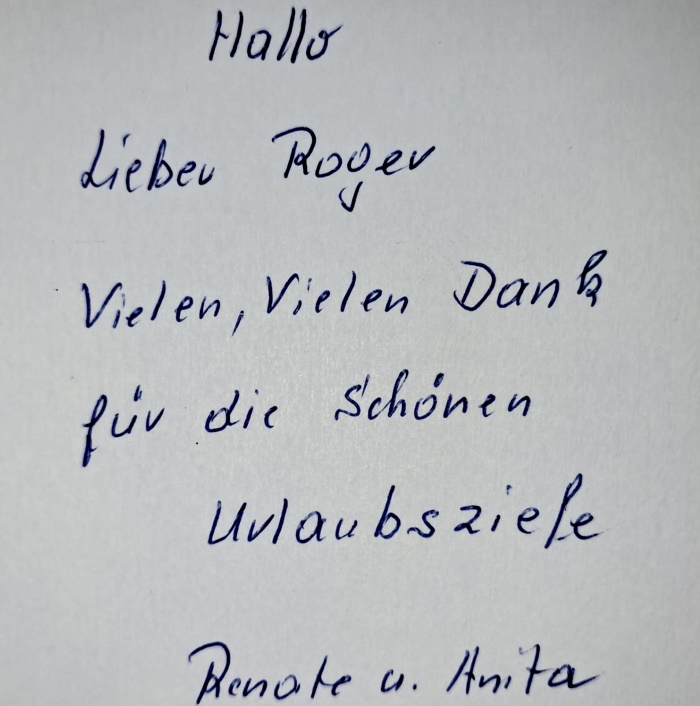 Hallo
Lieber Roger
Vielen, Vielen Dank
für die Schönen
Urlaubsziele
Renate u. Anita